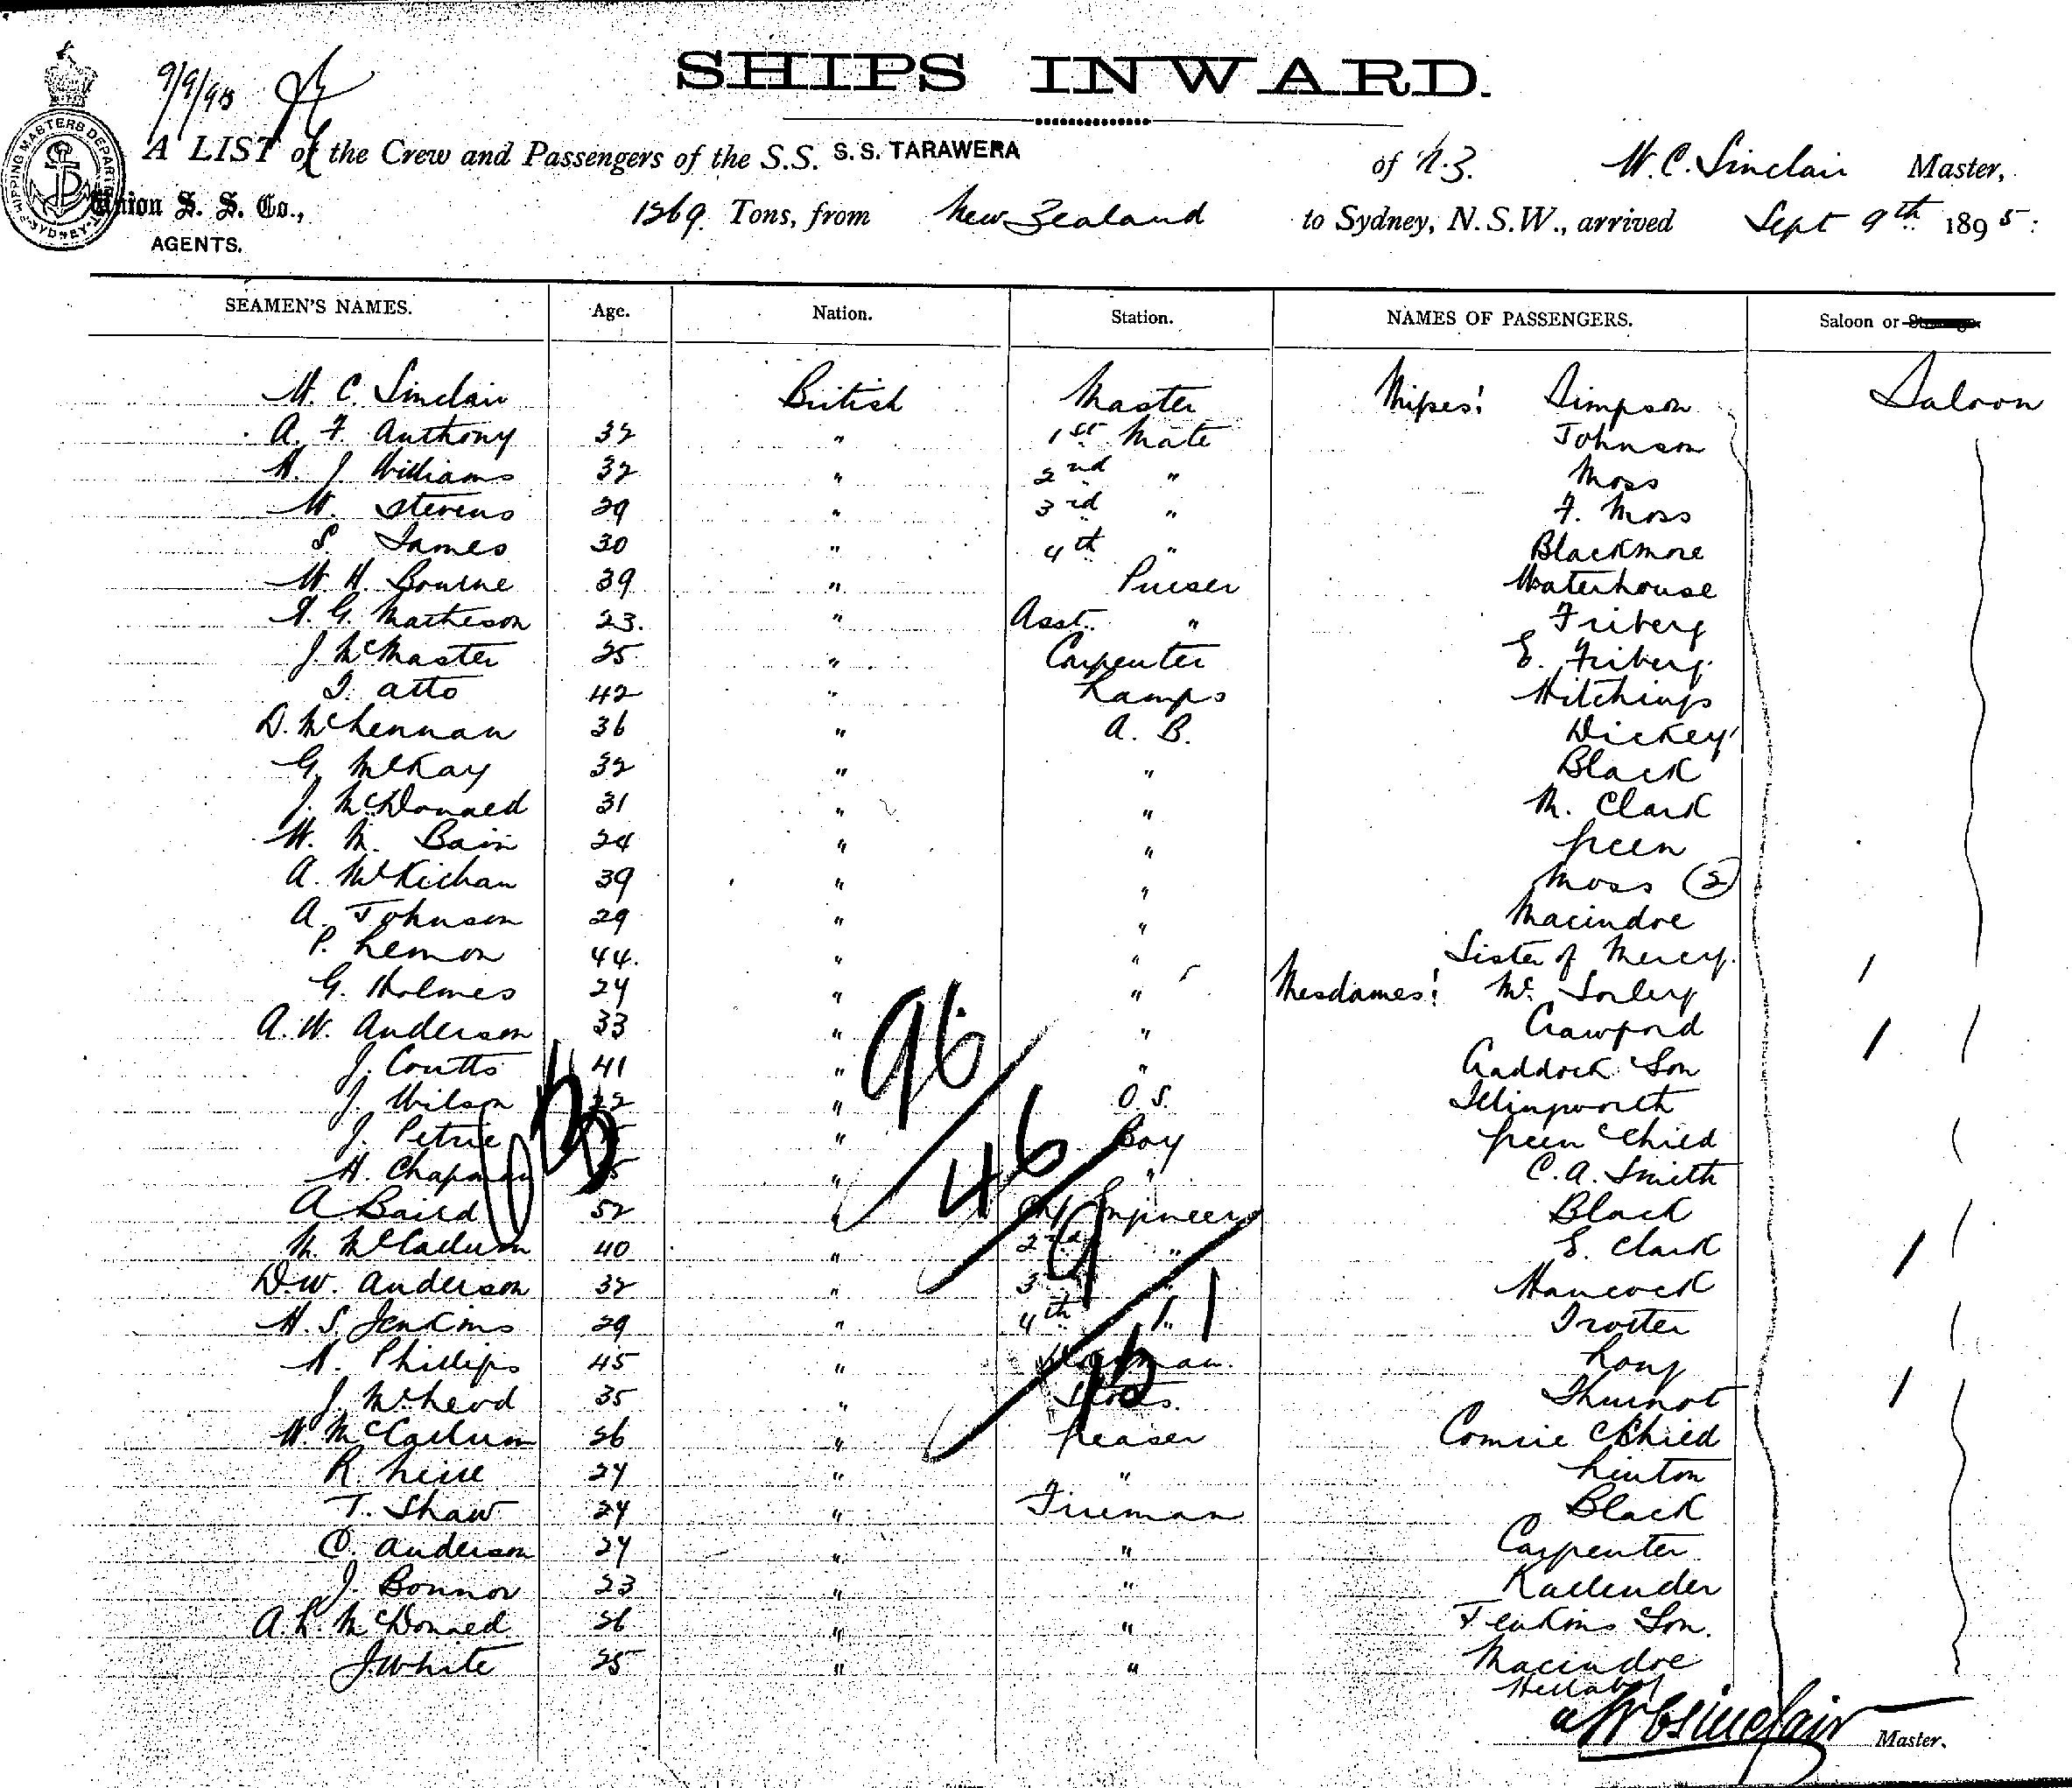 SHIPS INWARD.
9/9/95
SHIPPING MASTERS DEPARTMENT SYDNEY
A LIST of the Crew and Passengers of the S.S. S.S. TARAWERA of N.Z. W. C. Sinclair Master,
Union S. S. Co., 1269 Tons, from New Zealand to Sydney, N.S.W., arrived Sept 9th 1895:
AGENTS.
SEAMEN'S NAMES. Age. Nation. Station. NAMES OF PASSENGERS. Saloon or
W. C. Sinclair British Master Misses: Simpson Saloon
A. F. Anthony 32 " 1st Mate Johnson
H. J. Williams 32 " 2nd " Moss
W. Stevens 29 " 3rd " F. Moss
S. James 30 " 4th " Blackmore
W. H. Bourne 39 " Purser Waterhouse
G. Matheson 23. " Asst. " Friberg
J. McMaster 25 " Carpenter E. Friberg
atto 42 " Lamps Hitchings
D. McLennan 36 " A. B. Dickey
G. McKay 32 " " Black
J. McDonald 31 " " M. Clark
W. M. Bain 24 " " Green
A. McKichan 39 " " Moss (2)
A. Johnson 29 " " Macindoe
P. Lemon 44. " " Sister of Mercy.
G. Holmes 24 " " Mesdames: Mc Sorley
A. W. Anderson 33 " " Crawford
J. Coutts 41 " " Craddock & Son
J. Wilson 22 " O. S. Illingworth
J. Petrie " Boy Green & Child
H. Chapman " " C. A. Smith
A. Baird 52 " Engineer Black
M. McCallum 40 " 2nd " E. Clark
D. W. Anderson 32 " 3 " Hancock
H. S. Jenkins 29 " 4th " Trotter
Phillips 45 " Long
J. McLeod 35 " Stores. Thurnot
W. McCallum 26 " Greaser Comrie & Child
R. Neill 24 " " Linton
T. Shaw 24 " Fireman Black
C. Anderson 24 " " Carpenter
J. Bonnor 23 " " Kallender
A. L. McDonned 26 " " Jenkins & Son.
J. White 25 " " Macindoe
96
46
9
11
95
W C Sinclair Master.